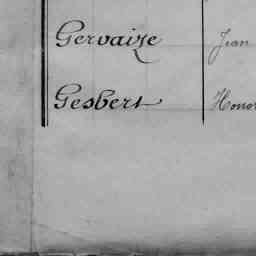 Gervaize Jean
Gesbert Honor